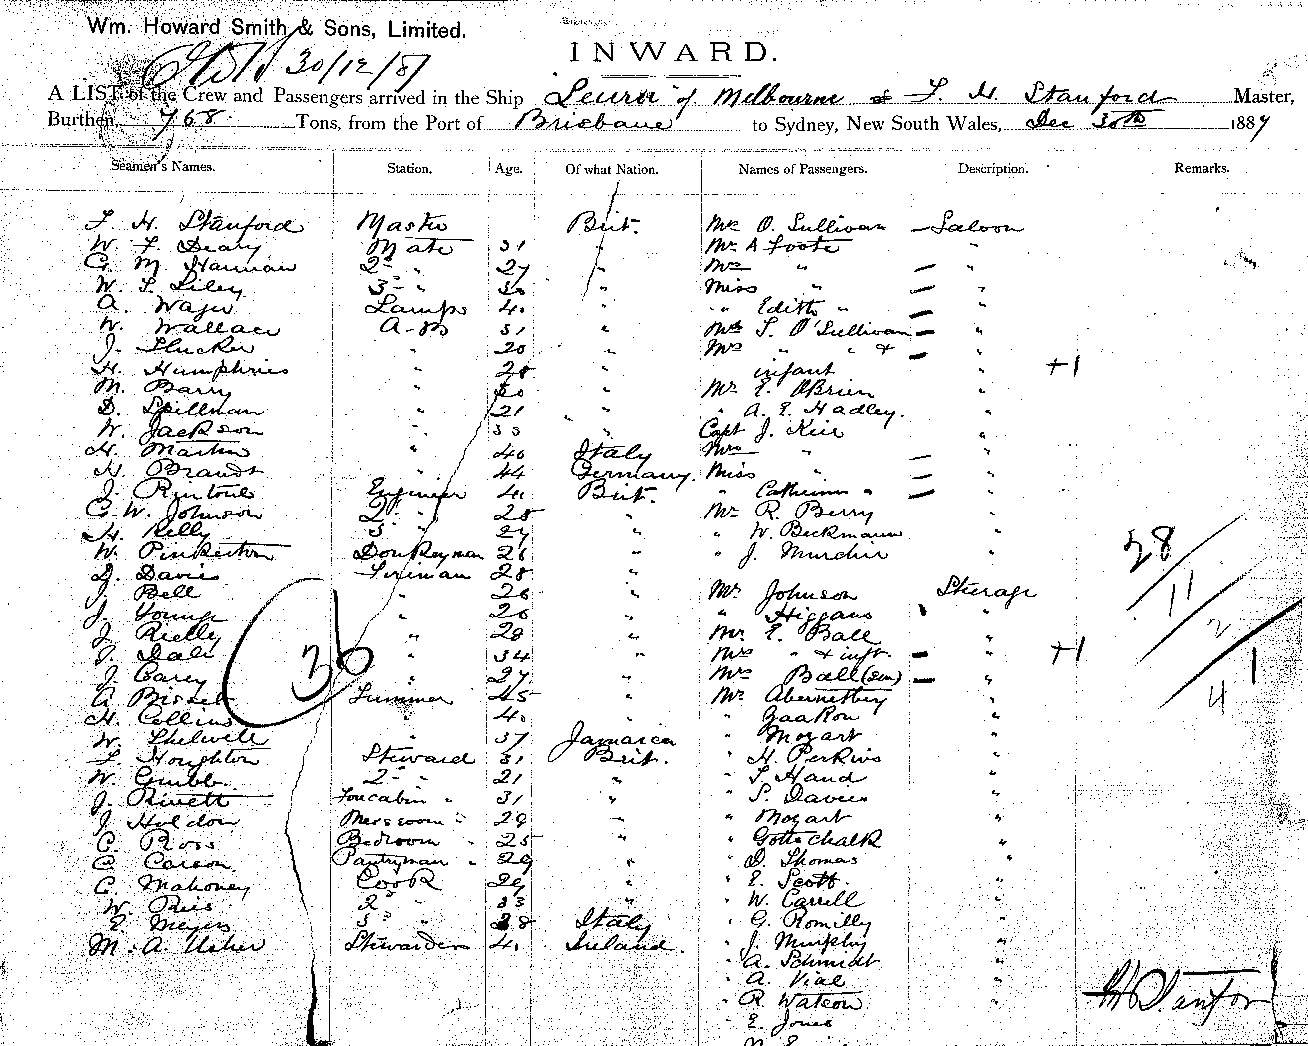 Wm. Howard Smith & Sons, Limited.
30/12/87
INWARD.
A LIST of the Crew and Passengers arrived in the Ship Leura of Melbourne F. H. Stanford Master,
Burthen, 768 Tons, from the Port of Brisbane to Sydney, New South Wales, Dec 30th 1887
Seamen's Names. Station. Age. Of what Nation. Names of Passengers. Description. Remarks.
F. H. Stanford Master Brit. Mr O. Sullivan Saloon
W. F. Deary Mate 31 " Mr A Foote "
G. M. Hannan 2nd " 27 " Mrs " "
W. F. Liley 3rd " " Miss " "
A. Wager Lamps 40 " " Edith " "
W. Wallace A-B 31 " O'Sullivan "
J. " 20 " Mrs " " & "
H. Humphries " 28 infant " +1
M. Barry " Mr E. OBrien "
D. Spillman " 21 " " A. E. Hadley. "
W. Jackson " 33 " Capt J. Keir "
H. Martin " 40 Italy Mrs " "
H. Brandt " 44 Germany. Miss " "
J. Rintoul Engineer 41 Brit. " Catherine " "
C. W. Johnson 2nd " 28 " Mr R. Berry "
H. Kelly 3 " 27 " " W. Beckmann "
W. Pinkerton Donkeyman 26 " " J. Murchie "
D. Davies Fireman 28 " 28
J. Bell " 26 " Mr Johnson Steerage 11
J. Young " 26 " " Higgans " 2
J. Rielly " 28 " Mr E. Ball "
J. Dale " 34 " Mrs " & inft. " +1 1
J. Carey " 27 " Mrs Ball (sen) " 4
36
A. Bisset Trimmer 45 " Mr Abernethey "
H. Collins " 40 " " "
W. Shelwell " 37 Jamaica " Mozart "
Houghton Steward 31 Brit. " H. Perkins "
W. Grubb 2nd " 21 " " T. Hand "
J. Rivett Forcabin " 31 " " S. Davies "
J. Holdon Messroom " 29 " " Mozart "
C. Ross Bedroom " 25 " " Gottschalk "
C. Carson Pantryman " 29 " " D. Thomas "
C. Mahoney Cook 29 " " E. Scott "
W. Ries 2nd " 33 " " W. Carrell "
E. Meyers 3rd " 38 Italy " G. Romilly "
M. A. Usher Stewardess 41 Ireland. " J. Murphy "
" A. Schmidt "
" A. Vial "
" R. Watson "
" E. Jones